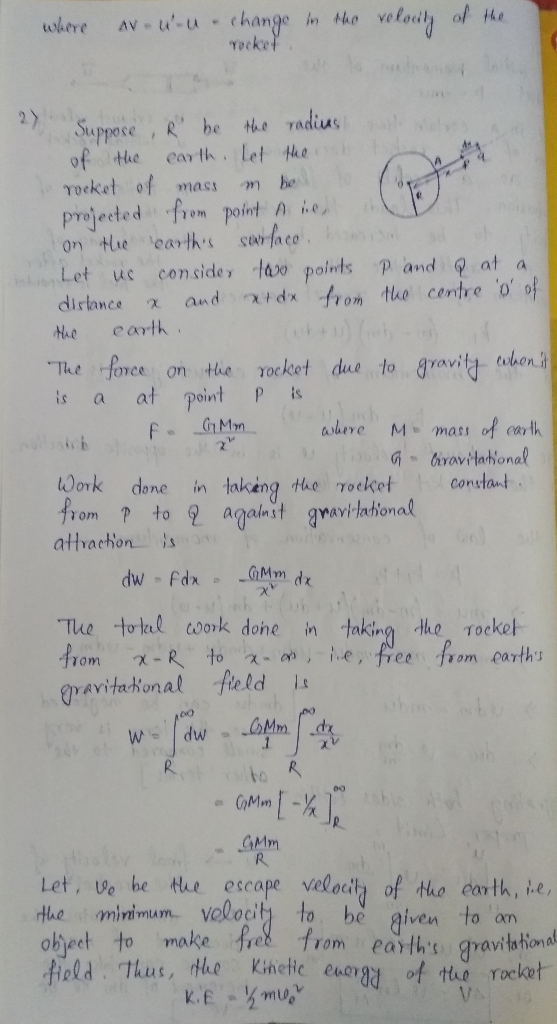 where ΔV = u'-u = change in the velocity of the
rocket.
2) Suppose, R be the radius
of the earth. Let the
rocket of mass m be
projected from point A i.e,
on the earth's surface.
Let us consider two points P and Q at a
distance x and x+dx from the centre 'O' of
the earth.
The force on the rocket due to gravity when it
is a at point P is
F = GMm/x² where M = mass of earth
G = Gravitational
constant.
Work done in taking the rocket
from P to Q against gravitational
attraction is
dW = Fdx = GMm/x² dx
The total work done in taking the rocket
from x=R to x=∞, i.e, free from earth's
gravitational field is
W = ∫_R^∞ dW = GMm/1 ∫_R^∞ dx/x²
= GMm [-1/x]_R^∞
= GMm/R
Let, ve be the escape velocity of the earth, i.e,
the minimum velocity to be given to an
object to make free from earth's gravitational
field. Thus, the kinetic energy of the rocket
K.E = ½ mve²